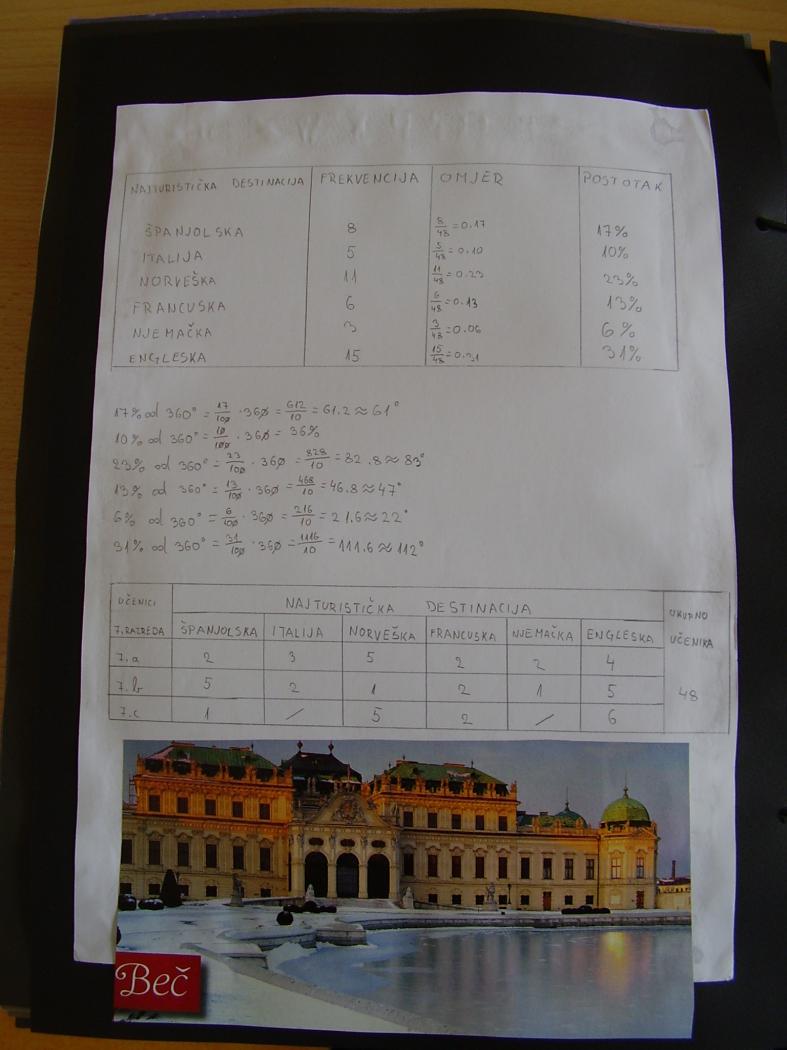 NAJTURISTIČKA DESTINACIJA FREKVENCIJA OMJER POSTOTAK
ŠPANJOLSKA 8 8/48=0.17 17%
ITALIJA 5 5/48=0.10 10%
NORVEŠKA 11 11/48=0.23 23%
FRANCUSKA 6 6/48=0.13 13%
NJEMAČKA 3 3/48=0.06 6%
ENGLESKA 15 15/48=0.31 31%
17% od 360° = 17/100 · 360 = 612/10 = 61.2 ≈ 61°
10% od 360° = 10/100 · 360 = 36%
23% od 360° = 23/100 · 360 = 828/10 = 82.8 ≈ 83°
13% od 360° = 13/100 · 360 = 468/10 = 46.8 ≈ 47°
6% od 360° = 6/100 · 360 = 216/10 = 21.6 ≈ 22°
31% od 360° = 31/100 · 360 = 1116/10 = 111.6 ≈ 112°
UČENICI NAJTURISTIČKA DESTINACIJA UKUPNO
7. RAZREDA ŠPANJOLSKA ITALIJA NORVEŠKA FRANCUSKA NJEMAČKA ENGLESKA UČENIKA
7.a 2 3 5 2 2 4
7.b 5 2 1 2 1 5 48
7.c 1 / 5 2 / 6
Beč